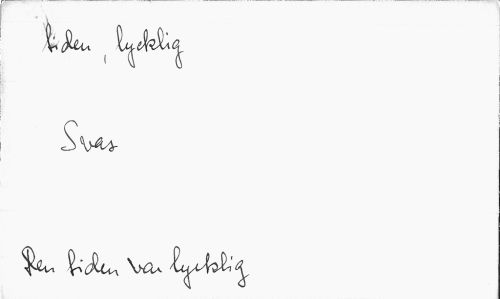 tiden, lycklig
Svas
Den tiden var lycklig